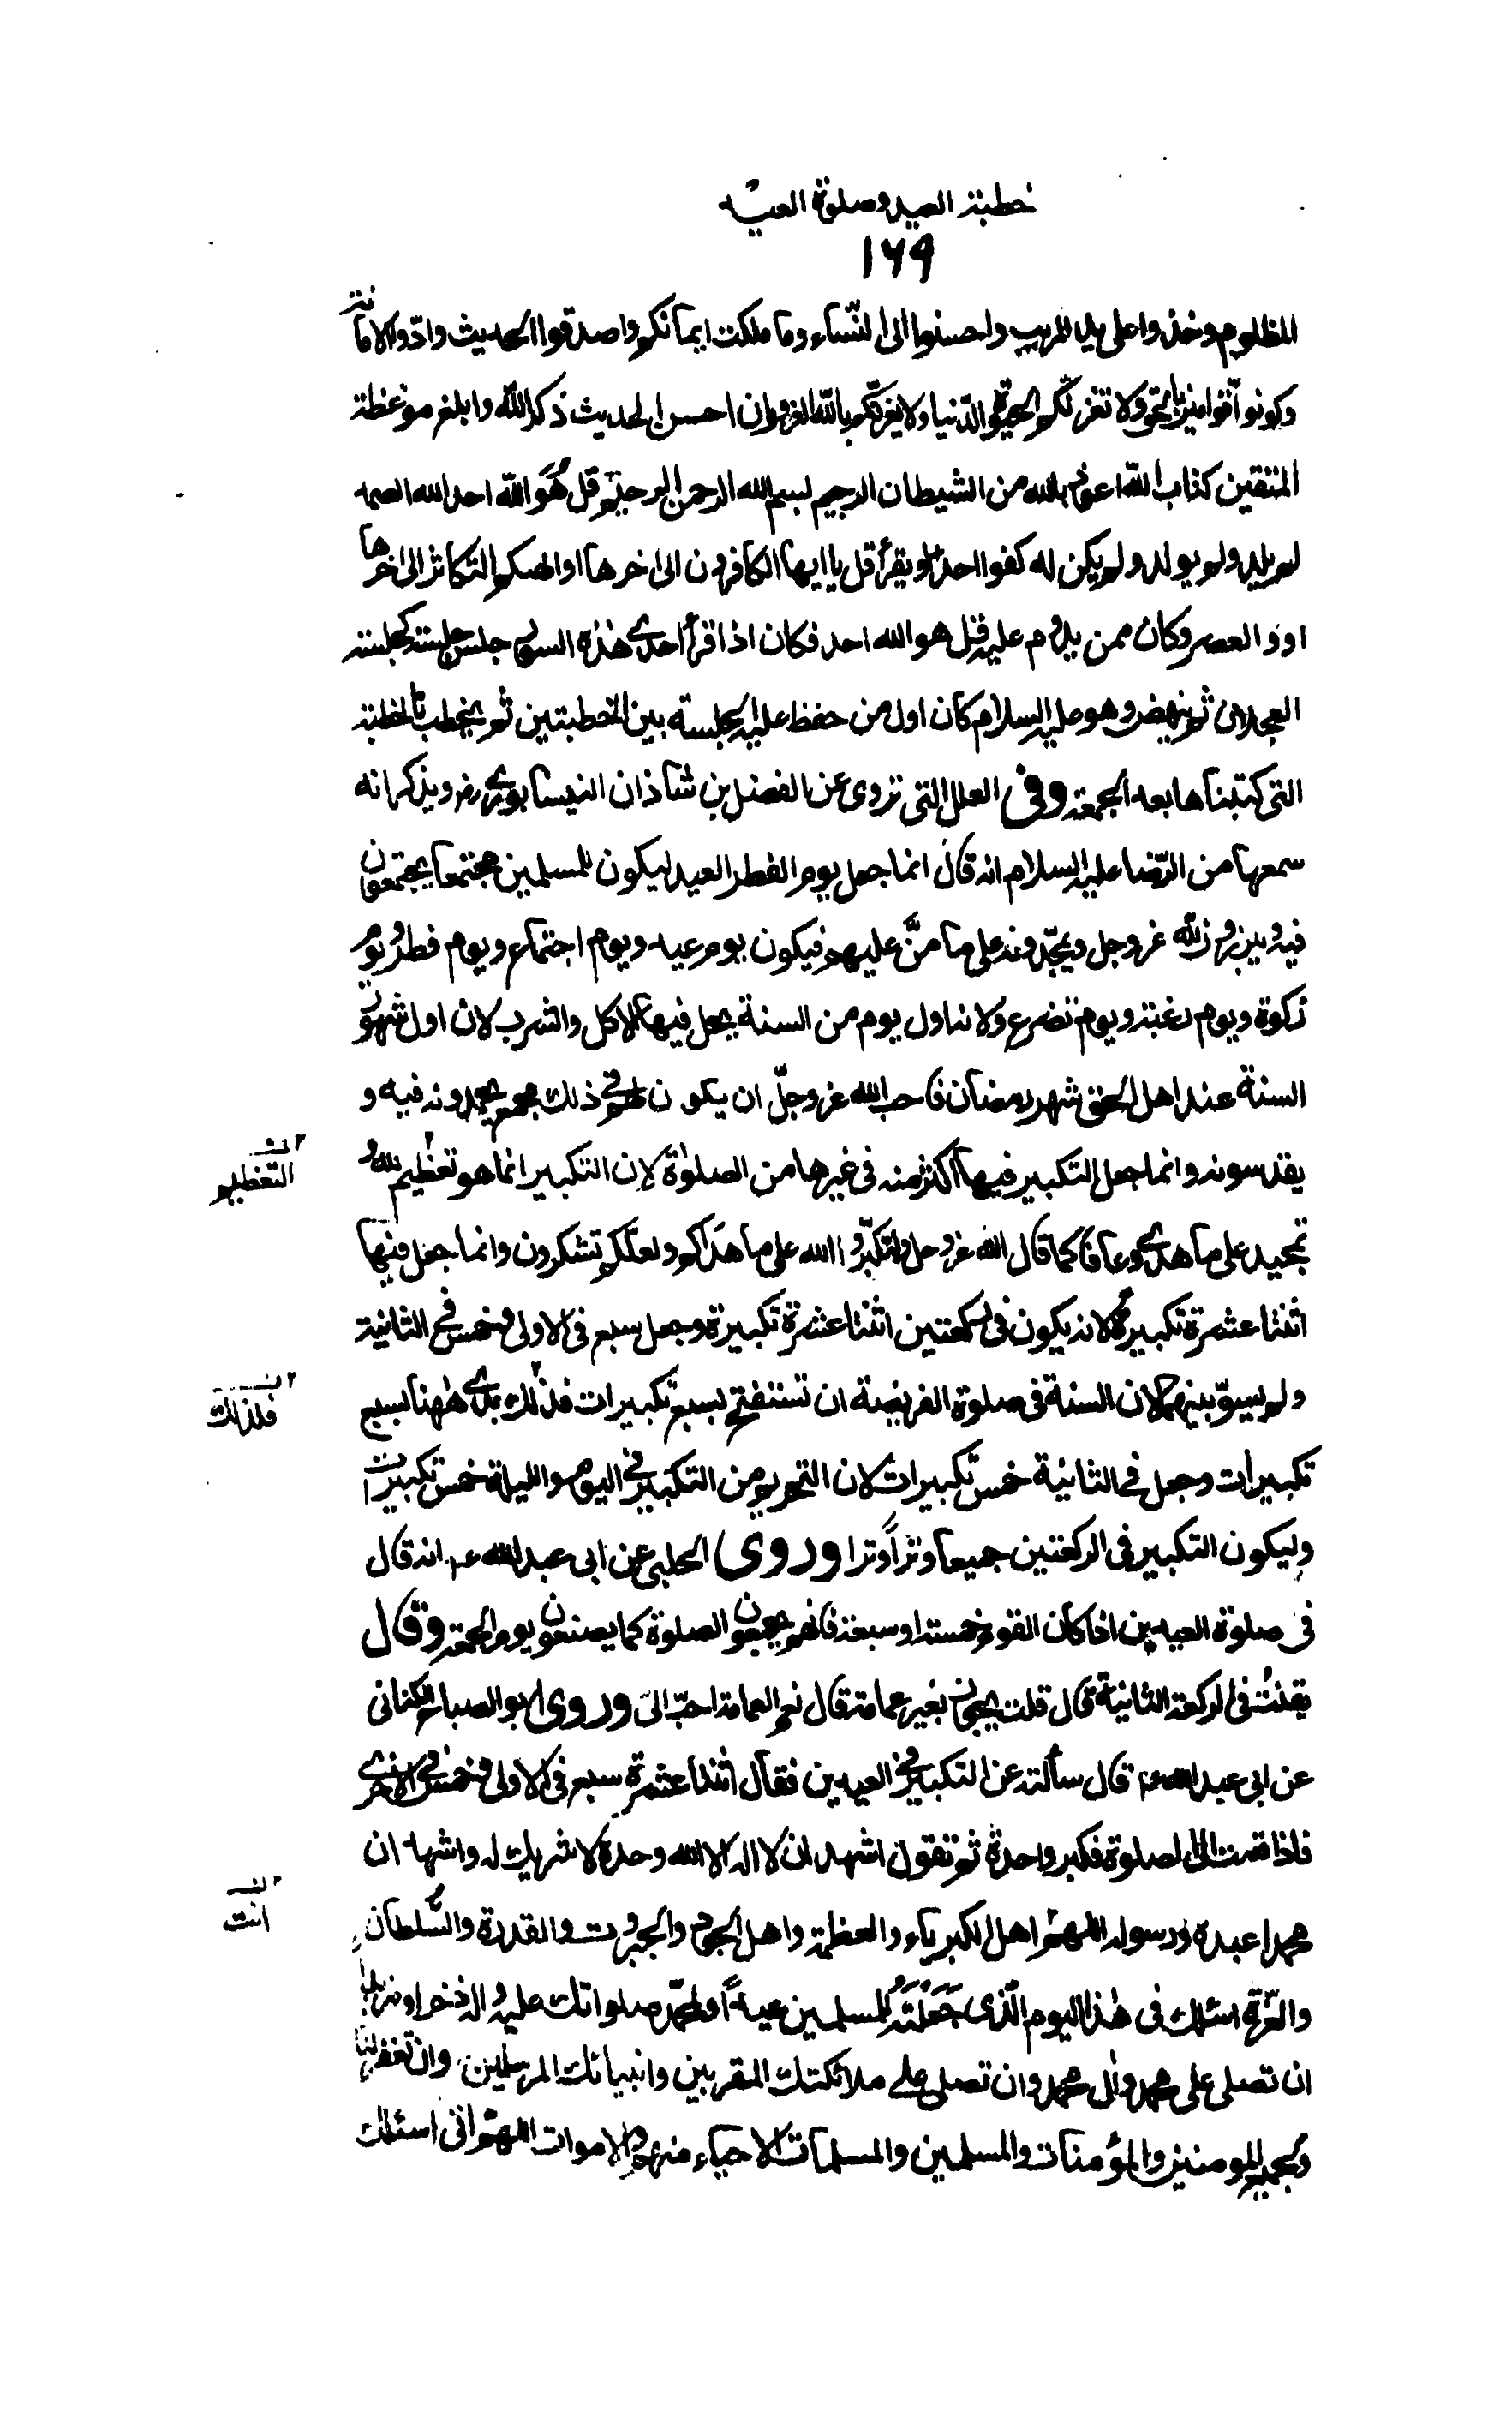 خطبة العيد وصلوة العيد
١٦٩
المظلوم وخذوا على يد المريب واحسنوا الى النّساء وما ملكت ايمانكم واصدقوا الحديث وادّوا الامانة
وكونوا قوّامين بالحق ولا تغرنّكم الحيوة الدّنيا ولا يغرنّكم بالله الغرور ان احسن الحديث ذكر الله وابلغ موعظة
المتقين كتاب الله اعوذ بالله من الشيطان الرجيم بسم الله الرحمن الرحيم قل هُوَ الله احد الله الصمد
لم يلد ولم يولد ولم يكن له كفوا احد او يقرأ قل يا ايها الكافرون الى اخرها او الهيكم التكاثر الى اخرها
او والعصر وكان ممن يدوم عليه قل هو الله احد فكان اذا قرأ احدى هذه السور جلس جلسة كجلسة
العجلان ثم ينهض وهو عليه السلام كان اول من حفظ عليه الجلسة بين الخطبتين ثم يخطب بالخطبة
التى كتبناها بعد الجمعة وفى العلل التى تروى عن الفضل بن شاذان النيسابورى رض ويذكر انه
سمعها من الرّضا عليه السلام انه قال انما جعل يوم الفطر العيد ليكون للمسلمين مجتمعا يجتمعون
فيه ويبرزون لله عز وجل ويمجّدونه على ما منَّ عليهم فيكون يوم عيد ويوم اجتماع ويوم فطر ويوم
زكوة ويوم رغبة ويوم تضرع ولانه اول يوم من السنة يحل فيها الاكل والشرب لان اول شهور
السنة عند اهل الحق شهر رمضان فاحب الله عز وجلّ ان يكون لهم فى ذلك مجمع يحمدونه فيه و
يقدسونه وانما جعل التكبير فيها اكثر منه فى غيرها من الصلوٰة لان التكبير انما هو تعظيم لله و
ان
التعظيم
تمجيد على ما هدى وعافا كما قال الله عز وجل ولتكبّروا الله على ما هداكم ولعلّكم تشكرون وانما جعل فيها
اثنتا عشرة تكبيرة لانه يكون فى ركعتين اثنتا عشرة تكبيرة وجعل سبع فى الاولى وخمس فى الثانية
ولم يسوّ بينهما لان السنة فى صلوة الفريضة ان تستفتح بسبع تكبيرات فلذلك بدى ههنا بسبع
فلذلك
تكبيرات وجعل فى الثانية خمس تكبيرات لان التحريم من التكبير فى اليوم والليلة خمس تكبيرات
وليكون التكبير فى الركعتين جميعا وتراً وترا وروى الحلبى عن ابى عبد الله ع انه قال
فى صلوة العيدين اذا كان القوم خمسة او سبعة فانهم يجمعون الصلوة كما يصنعون يوم الجمعة وقال
يقنت فى الركعة الثانية قال قلت يجوز بغير عمامة قال نعم العمامة احبّ الىّ وروى ابو الصباح الكنانى
عن ابى عبد الله ع قال سألته عن التكبير فى العيدين فقال اثنتا عشرة سبع فى الاولى وخمس فى الاخرى
فاذا قمت الى الصلوة فكبر واحدة ثم تقول اشهد ان لا اله الا الله وحده لا شريك له واشهد ان
محمدا عبده ورسوله اللهمّ اهل الكبرياء والعظمة واهل الجود والجبروت والقدرة والسّلطان
انت
والعزّة اسئلك فى هذا اليوم الّذى جَعَلْتَهُ للمسلمين عيداً ولمحمّد صلواتك عليه واله ذخرا ومزيدا
ان تصلى على محمد وآل محمد وان تصلى على ملائكتك المقربين وانبيائك المرسلين وان تغفر لنا
ولجميع المومنين والمؤمنات والمسلمين والمسلمات الاحياء منهم والاموات اللهمّ انى اسئلك